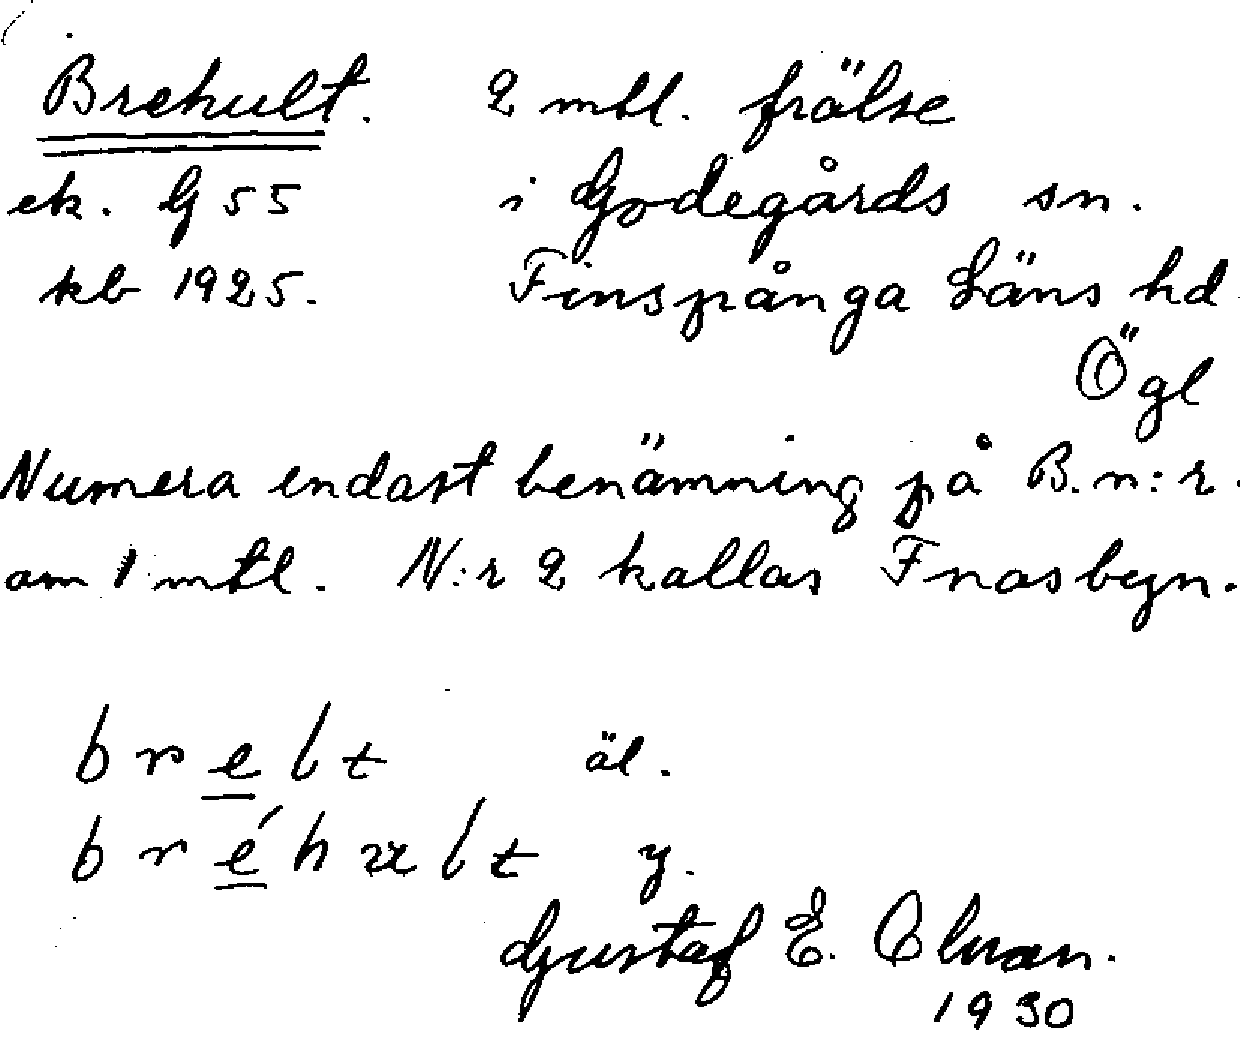 Brehult. 2 mtl. frälse
ek. G 55 i Godegårds sn.
kb 1925. Finspånga Läns hd
Ögl
Numera endast benämning på B. n:r.
om 1 mtl. N:r 2 kallas Fnasbyn.
b r e l t äl.
b r é h u l t y.
Gustaf E.
1930